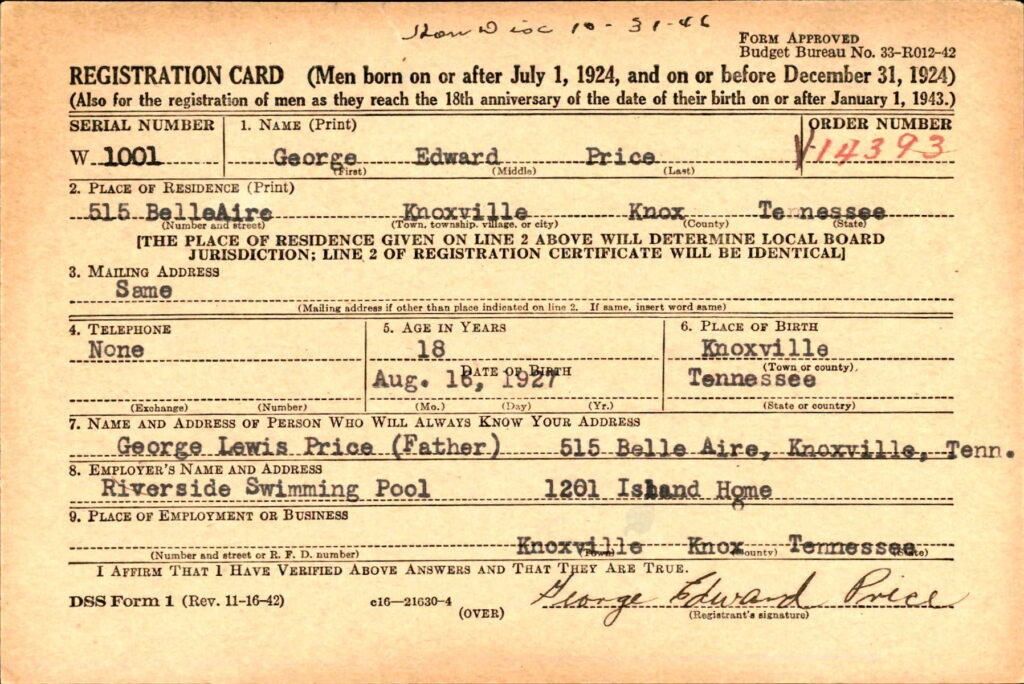 Hon Disc 10-31-46
FORM APPROVED
Budget Bureau No. 33-R012-42
REGISTRATION CARD (Men born on or after July 1, 1924, and on or before December 31, 1924)
(Also for the registration of men as they reach the 18th anniversary of the date of their birth on or after January 1, 1943.)
SERIAL NUMBER 1. NAME (Print) ORDER NUMBER
W 1001 George Edward Price 14393
(First) (Middle) (Last)
2. PLACE OF RESIDENCE (Print)
515 BelleAire Knoxville Knox Tennessee
(Number and street) (Town, township, village, or city) (County) (State)
[THE PLACE OF RESIDENCE GIVEN ON LINE 2 ABOVE WILL DETERMINE LOCAL BOARD
JURISDICTION; LINE 2 OF REGISTRATION CERTIFICATE WILL BE IDENTICAL]
3. MAILING ADDRESS
Same
(Mailing address if other than place indicated on line 2. If same, insert word same)
4. TELEPHONE 5. AGE IN YEARS 6. PLACE OF BIRTH
None 18 Knoxville
DATE OF BIRTH (Town or county)
Aug. 16, 1927 Tennessee
(Exchange) (Number) (Mo.) (Day) (Yr.) (State or country)
7. NAME AND ADDRESS OF PERSON WHO WILL ALWAYS KNOW YOUR ADDRESS
George Lewis Price (Father) 515 Belle Aire, Knoxville, Tenn.
8. EMPLOYER'S NAME AND ADDRESS
Riverside Swimming Pool 1201 Island Home
9. PLACE OF EMPLOYMENT OR BUSINESS
Knoxville Knox Tennessee
(Number and street or R. F. D. number) (Town) (County) (State)
I AFFIRM THAT I HAVE VERIFIED ABOVE ANSWERS AND THAT THEY ARE TRUE.
DSS Form 1 (Rev. 11-16-42) c16—21630-4 George Edward Price
(OVER) (Registrant's signature)